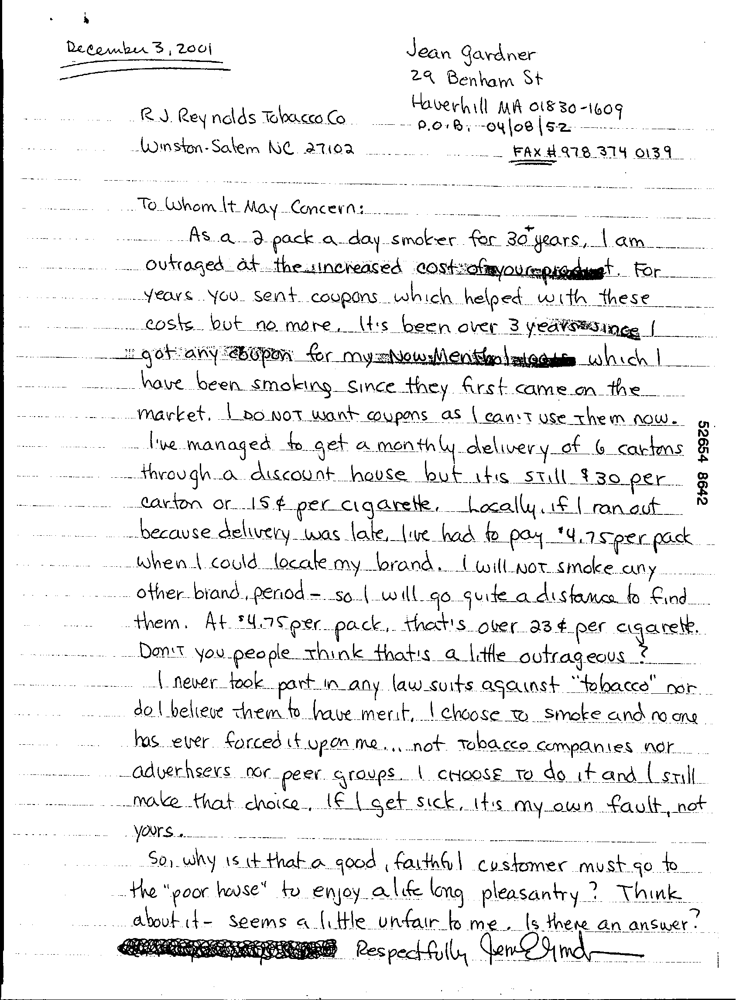 December 3, 2001
Jean Gardner
29 Benham St
Haverhill MA 01830-1609
D.O.B. 04/08/52
FAX # 978 374 0139
R J. Reynolds Tobacco Co
Winston-Salem NC 27102
To Whom It May Concern:
As a 2 pack a day smoker for 30+ years, I am
outraged at the increased cost of your product. For
years you sent coupons which helped with these
costs but no more. It's been over 3 years since I
got any coupon for my Now Menthol which I
have been smoking since they first came on the
market. I DO NOT want coupons as I can't use them now.
I've managed to get a monthly delivery of 6 cartons
through a discount house but it is still $30 per
carton or 15¢ per cigarette. Locally, if I ran out
because delivery was late, I've had to pay $4.75 per pack
when I could locate my brand. I will NOT smoke any
other brand, period - so I will go quite a distance to find
them. At $4.75 per pack, that's over 23¢ per cigarette.
Don't you people think that's a little outrageous?
I never took part in any law suits against "tobacco" nor
do I believe them to have merit. I choose to smoke and no one
has ever forced it upon me... not tobacco companies nor
advertisers nor peer groups. I CHOOSE TO do it and I still
make that choice. If I get sick, it's my own fault, not
yours.
So, why is it that a good, faithful customer must go to
the "poor house" to enjoy a life long pleasantry? Think
about it - seems a little unfair to me. Is there an answer?
Respectfully
52654 8642